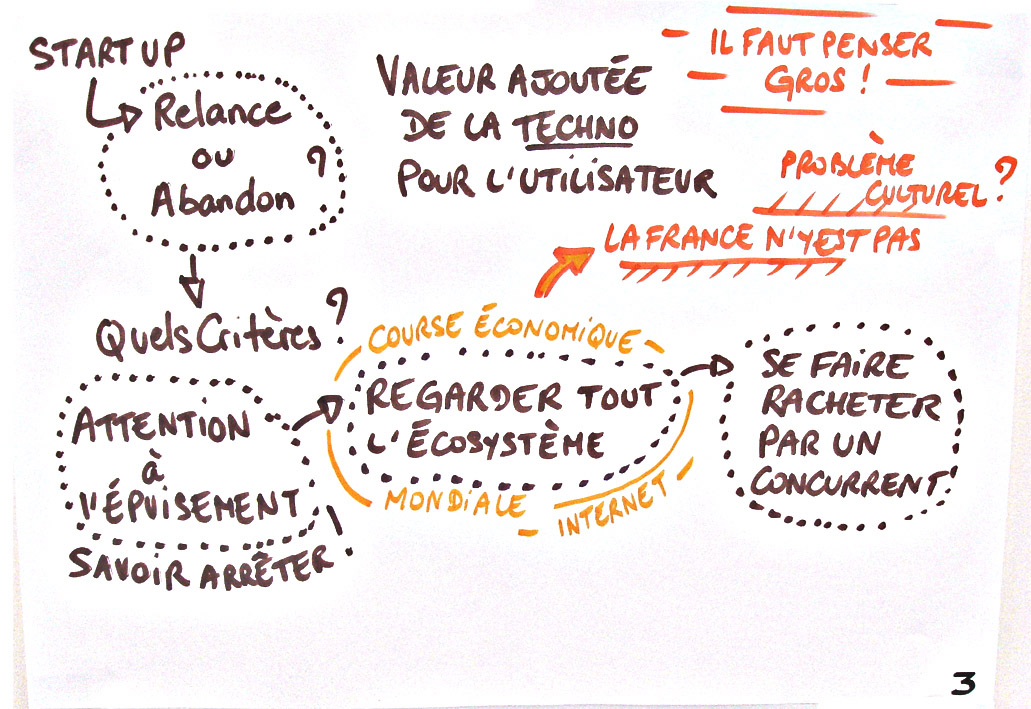 START UP
Relance
ou
Abandon ?
Quels Critères ?
ATTENTION
à
l'ÉPUISEMENT
SAVOIR ARRÊTER !
VALEUR AJOUTÉE
DE LA TECHNO
POUR L'UTILISATEUR
IL FAUT PENSER
GROS !
PROBLÈME
CULTUREL ?
LA FRANCE N'Y EST PAS
COURSE ÉCONOMIQUE
REGARDER TOUT
L'ÉCOSYSTÈME
MONDIALE
INTERNET
SE FAIRE
RACHETER
PAR UN
CONCURRENT!
3